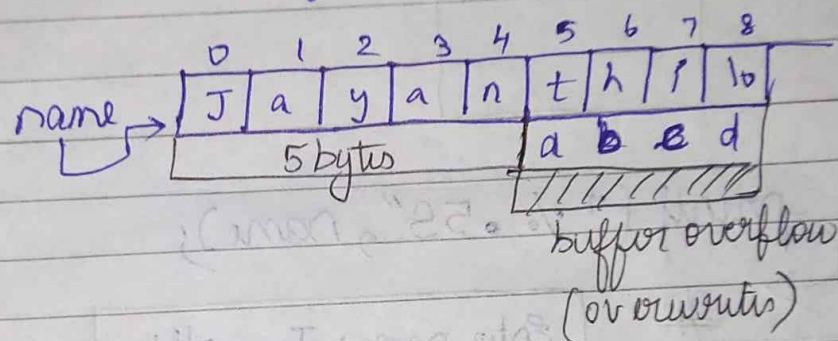 0 1 2 3 4 5 6 7 8
name → J a y a n t h i \0
5 bytes a b c d
buffer overflow
(overwrites)